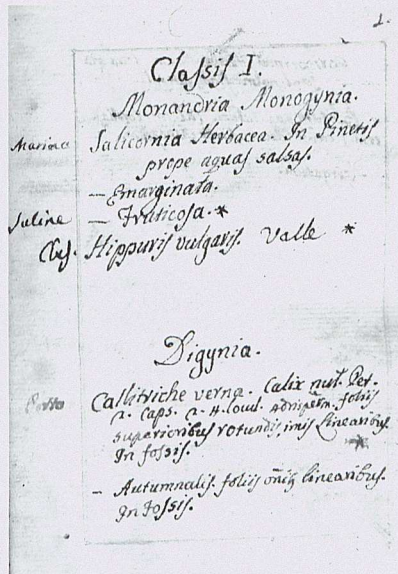 1.
Classis I.
Monandria Monogynia.
Salicornia Herbacea. In Pinetis
prope aquas salsas.
— Emarginata.
Saline — Fruticosa. *
Hippuris vulgaris. Valle *
Digynia.
Callitriche verna. Calix null. Pet.
2. Caps. 2. 4. locul. foliis
superioribus rotundis, imis Linearibus.
In fossis.
— Autumnalis. foliis linearibus.
In Fossis.